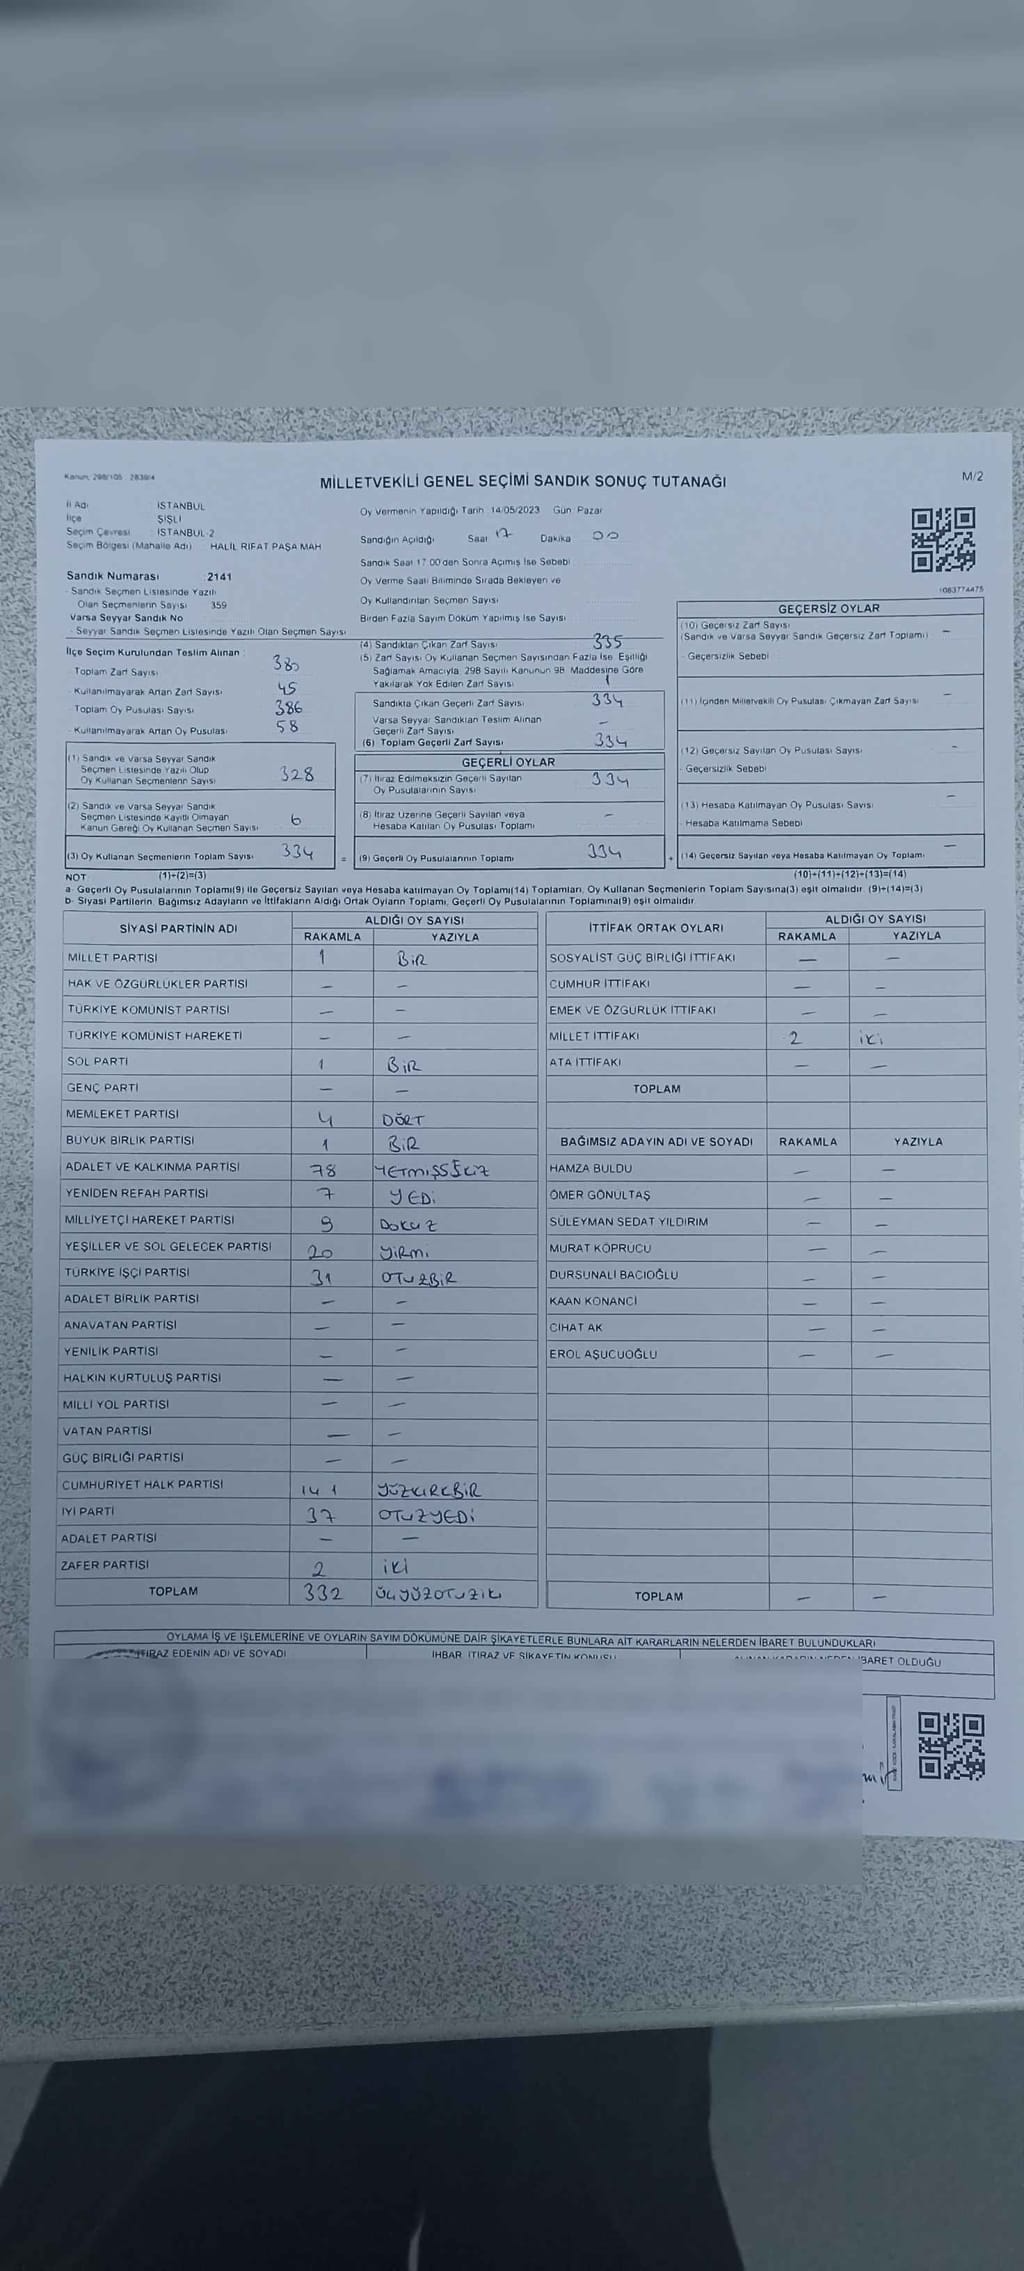 Kanun: 298/105 2839/4
MİLLETVEKİLİ GENEL SEÇİMİ SANDIK SONUÇ TUTANAĞI
M/2
İl Adı İSTANBUL
İlçe ŞİŞLİ
Seçim Çevresi İSTANBUL-2
Seçim Bölgesi (Mahalle Adı) HALİL RIFAT PAŞA MAH
Oy Vermenin Yapıldığı Tarih 14/05/2023 Gün Pazar
Sandığın Açıldığı Saat 17 Dakika 00
Sandık Saat 17:00'den Sonra Açılmış İse Sebebi
Oy Verme Saati Bitiminde Sırada Bekleyen ve
Oy Kullandırılan Seçmen Sayısı
Birden Fazla Sayım Döküm Yapılmış İse Sayısı
1083774475
Sandık Numarası 2141
- Sandık Seçmen Listesinde Yazılı
Olan Seçmenlerin Sayısı 359
Varsa Seyyar Sandık No
- Seyyar Sandık Seçmen Listesinde Yazılı Olan Seçmen Sayısı
İlçe Seçim Kurulundan Teslim Alınan :
- Toplam Zarf Sayısı 380
- Kullanılmayarak Artan Zarf Sayısı 45
- Toplam Oy Pusulası Sayısı 386
- Kullanılmayarak Artan Oy Pusulası 58
(1) Sandık ve Varsa Seyyar Sandık
Seçmen Listesinde Yazılı Olup
Oy Kullanan Seçmenlerin Sayısı 328
(2) Sandık ve Varsa Seyyar Sandık
Seçmen Listesinde Kayıtlı Olmayan
Kanun Gereği Oy Kullanan Seçmen Sayısı 6
(3) Oy Kullanan Seçmenlerin Toplam Sayısı 334 =
(1)+(2)=(3)
(4) Sandıktan Çıkan Zarf Sayısı 335
(5) Zarf Sayısı Oy Kullanan Seçmen Sayısından Fazla İse Eşitliği
Sağlamak Amacıyla 298 Sayılı Kanunun 98. Maddesine Göre
Yakılarak Yok Edilen Zarf Sayısı 1
Sandıkta Çıkan Geçerli Zarf Sayısı 334
Varsa Seyyar Sandıktan Teslim Alınan
Geçerli Zarf Sayısı -
(6) Toplam Geçerli Zarf Sayısı 334
GEÇERLİ OYLAR
(7) İtiraz Edilmeksizin Geçerli Sayılan
Oy Pusulalarının Sayısı 334
(8) İtiraz Üzerine Geçerli Sayılan veya
Hesaba Katılan Oy Pusulası Toplamı -
(9) Geçerli Oy Pusulalarının Toplamı 334 +
GEÇERSİZ OYLAR
(10) Geçersiz Zarf Sayısı
(Sandık ve Varsa Seyyar Sandık Geçersiz Zarf Toplamı) -
- Geçersizlik Sebebi
(11) İçinden Milletvekili Oy Pusulası Çıkmayan Zarf Sayısı -
(12) Geçersiz Sayılan Oy Pusulası Sayısı -
- Geçersizlik Sebebi
(13) Hesaba Katılmayan Oy Pusulası Sayısı -
- Hesaba Katılmama Sebebi
(14) Geçersiz Sayılan veya Hesaba Katılmayan Oy Toplamı -
(10)+(11)+(12)+(13)=(14)
NOT
a- Geçerli Oy Pusulalarının Toplamı(9) ile Geçersiz Sayılan veya Hesaba katılmayan Oy Toplamı(14) Toplamları, Oy Kullanan Seçmenlerin Toplam Sayısına(3) eşit olmalıdır. (9)+(14)=(3)
b- Siyasi Partilerin, Bağımsız Adayların ve İttifakların Aldığı Ortak Oyların Toplamı, Geçerli Oy Pusulalarının Toplamına(9) eşit olmalıdır
SİYASİ PARTİNİN ADI ALDIĞI OY SAYISI
RAKAMLA YAZIYLA
MİLLET PARTİSİ 1 BİR
HAK VE ÖZGÜRLÜKLER PARTİSİ - -
TÜRKİYE KOMÜNİST PARTİSİ - -
TÜRKİYE KOMÜNİST HAREKETİ - -
SOL PARTİ 1 BİR
GENÇ PARTİ - -
MEMLEKET PARTİSİ 4 DÖRT
BÜYÜK BİRLİK PARTİSİ 1 BİR
ADALET VE KALKINMA PARTİSİ 78 YETMİŞSEKİZ
YENİDEN REFAH PARTİSİ 7 YEDİ
MİLLİYETÇİ HAREKET PARTİSİ 9 DOKUZ
YEŞİLLER VE SOL GELECEK PARTİSİ 20 YİRMİ
TÜRKİYE İŞÇİ PARTİSİ 31 OTUZBİR
ADALET BİRLİK PARTİSİ - -
ANAVATAN PARTİSİ - -
YENİLİK PARTİSİ - -
HALKIN KURTULUŞ PARTİSİ - -
MİLLİ YOL PARTİSİ - -
VATAN PARTİSİ - -
GÜÇ BİRLİĞİ PARTİSİ - -
CUMHURİYET HALK PARTİSİ 141 YÜZKIRKBİR
İYİ PARTİ 37 OTUZYEDİ
ADALET PARTİSİ - -
ZAFER PARTİSİ 2 İKİ
TOPLAM 332 ÜÇYÜZOTUZİKİ
İTTİFAK ORTAK OYLARI ALDIĞI OY SAYISI
RAKAMLA YAZIYLA
SOSYALİST GÜÇ BİRLİĞİ İTTİFAKI - -
CUMHUR İTTİFAKI - -
EMEK VE ÖZGÜRLÜK İTTİFAKI - -
MİLLET İTTİFAKI 2 İKİ
ATA İTTİFAKI - -
TOPLAM
BAĞIMSIZ ADAYIN ADI VE SOYADI RAKAMLA YAZIYLA
HAMZA BULDU - -
ÖMER GÖNÜLTAŞ - -
SÜLEYMAN SEDAT YILDIRIM - -
MURAT KÖPRÜCÜ - -
DURSUNALİ BACIOĞLU - -
KAAN KONANÇ - -
CİHAT AK - -
EROL AŞUCUOĞLU - -
TOPLAM - -
OYLAMA İŞ VE İŞLEMLERİNE VE OYLARIN SAYIM DÖKÜMÜNE DAİR ŞİKAYETLERLE BUNLARA AİT KARARLARIN NELERDEN İBARET BULUNDUKLARI
İTİRAZ EDENİN ADI VE SOYADI
İHBAR, İTİRAZ VE ŞİKAYETİN KONUSU
İBARET OLDUĞU